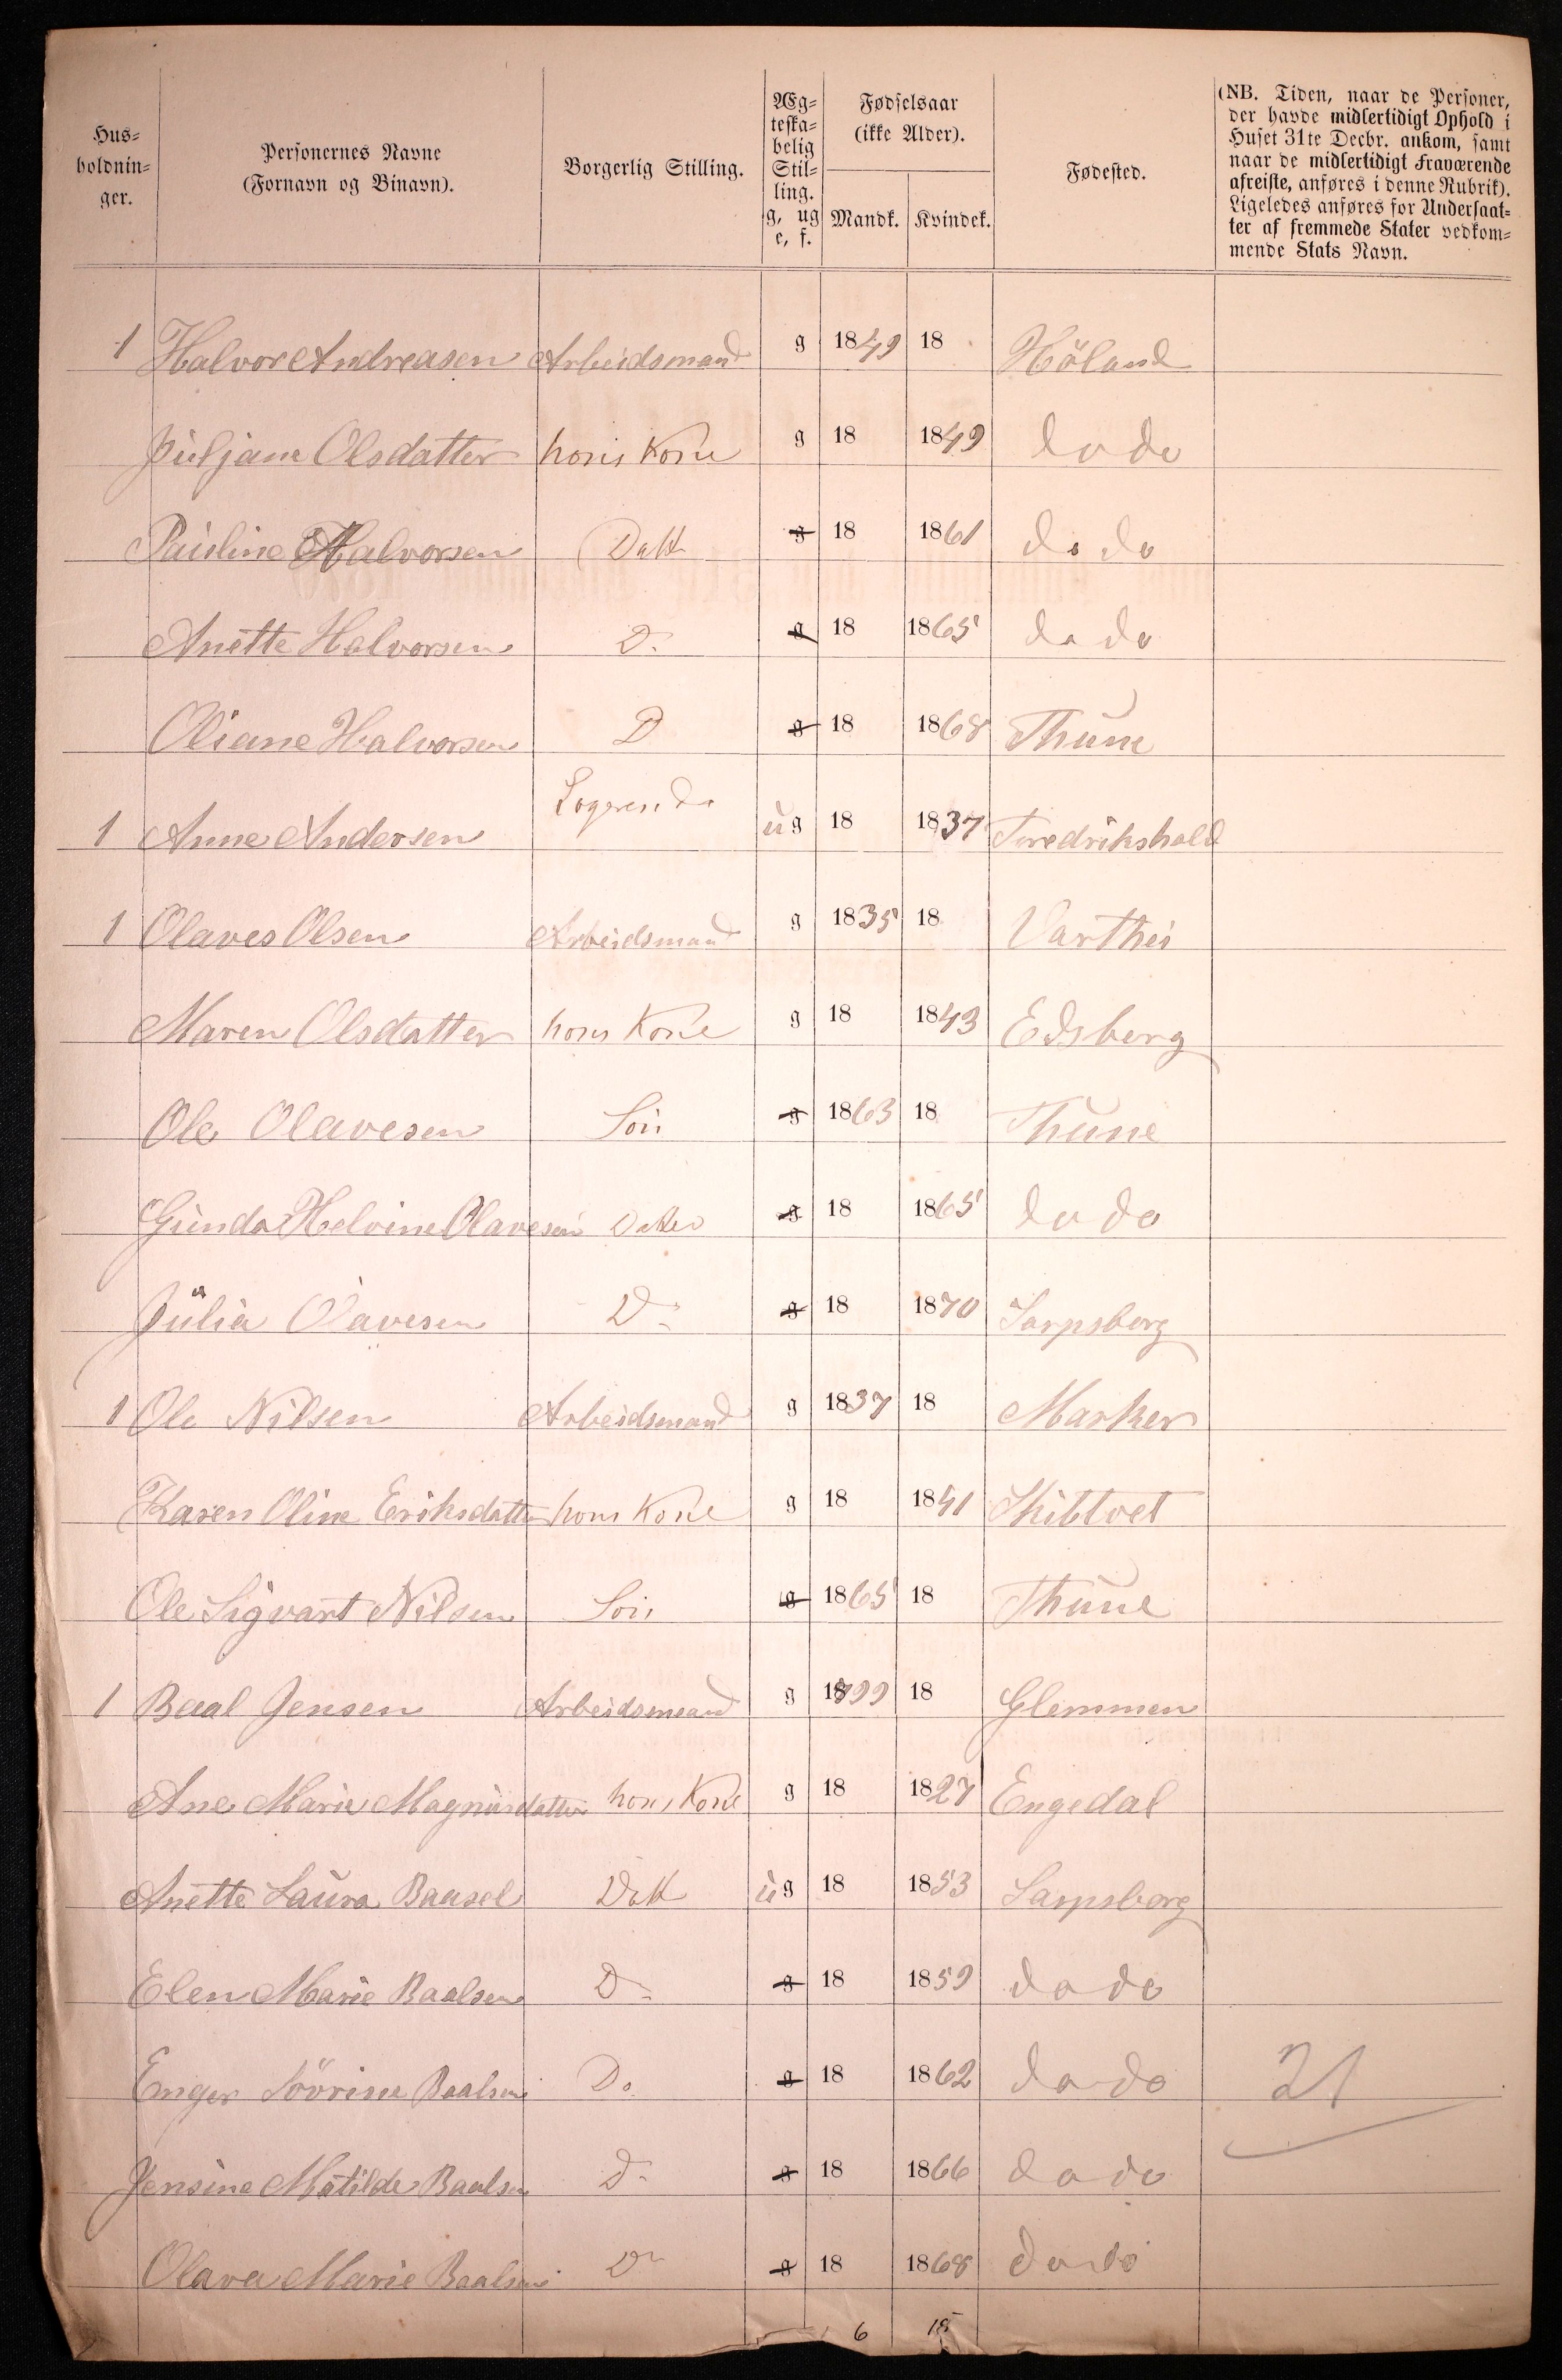 Hus-
holdnin-
ger.
Personernes Navne
(Fornavn og Binavn).
Borgerlig Stilling.
Æg-
teska-
belig
Stil-
ling.
g, ug
e, f.
Fødselsaar
(ikke Alder).
Mandk. Kvindek.
Fødested.
(NB. Tiden, naar de Personer,
der havde midlertidigt Ophold i
Huset 31te Decbr. ankom, samt
naar de midlertidigt Fraværende
afreiste, anføres i denne Rubrik).
Ligeledes anføres for Undersaat-
ter af fremmede Stater vedkom-
mende Stats Navn.
1 Halvor Andreasen Arbeidsmand g 1849 18 Höland
Juljane Olsdatter hans Kone g 18 1849 do do
Pauline Halvorsen Datt g 18 1861 do do
Anette Halvorsen D. g 18 1865 do do
Oliane Halvorsen D g 18 1868 Thune
1 Anne Andersen Logerende ug 18 1837 Fredrikshald
1 Olaves Olsen Arbeidsmand g 1835 18 Varthei
Maren Olsdatter hans Kone g 18 1843 Edsberg
Ole Olavesen Sön g 1863 18 Thune
Gunda Helvine Olavesen Datter g 18 1865 do do
Julia Olavesen D. g 18 1870 Sarpsborg
1 Ole Nilsen Arbeidsmand g 1837 18 Marker
Karen Oline Eriksdatter hans Kone g 18 1841 Skibtvet
Ole Sigvart Nilsen Sön g 1865 18 Thune
1 Baal Jensen Arbeidsmand g 1799 18 Glemmen
Ane Marie Magnusdatter hans Kone g 18 1827 Engedal
Anette Laura Baasel Datt ug 18 1853 Sarpsborg
Elen Marie Baalsen D. g 18 1859 do do
Enger Sövrine Baalsen Do. g 18 1862 do do 21
Jensine Matilde Baalsen D. g 18 1866 do do
Olava Marie Baalsen D. g 18 1868 do do
6 15